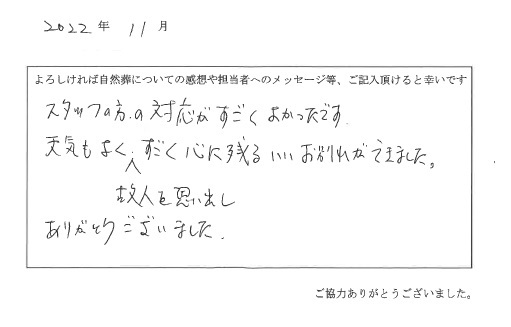 2022 年 11 月
よろしければ自然葬についての感想や担当者へのメッセージ等、ご記入頂けると幸いです
スタッフの方の対応がすごくよかったです.
天気もよく、すごく心に残るいいお別れができました。
故人を思い出し
ありがとうございました.
ご協力ありがとうございました。